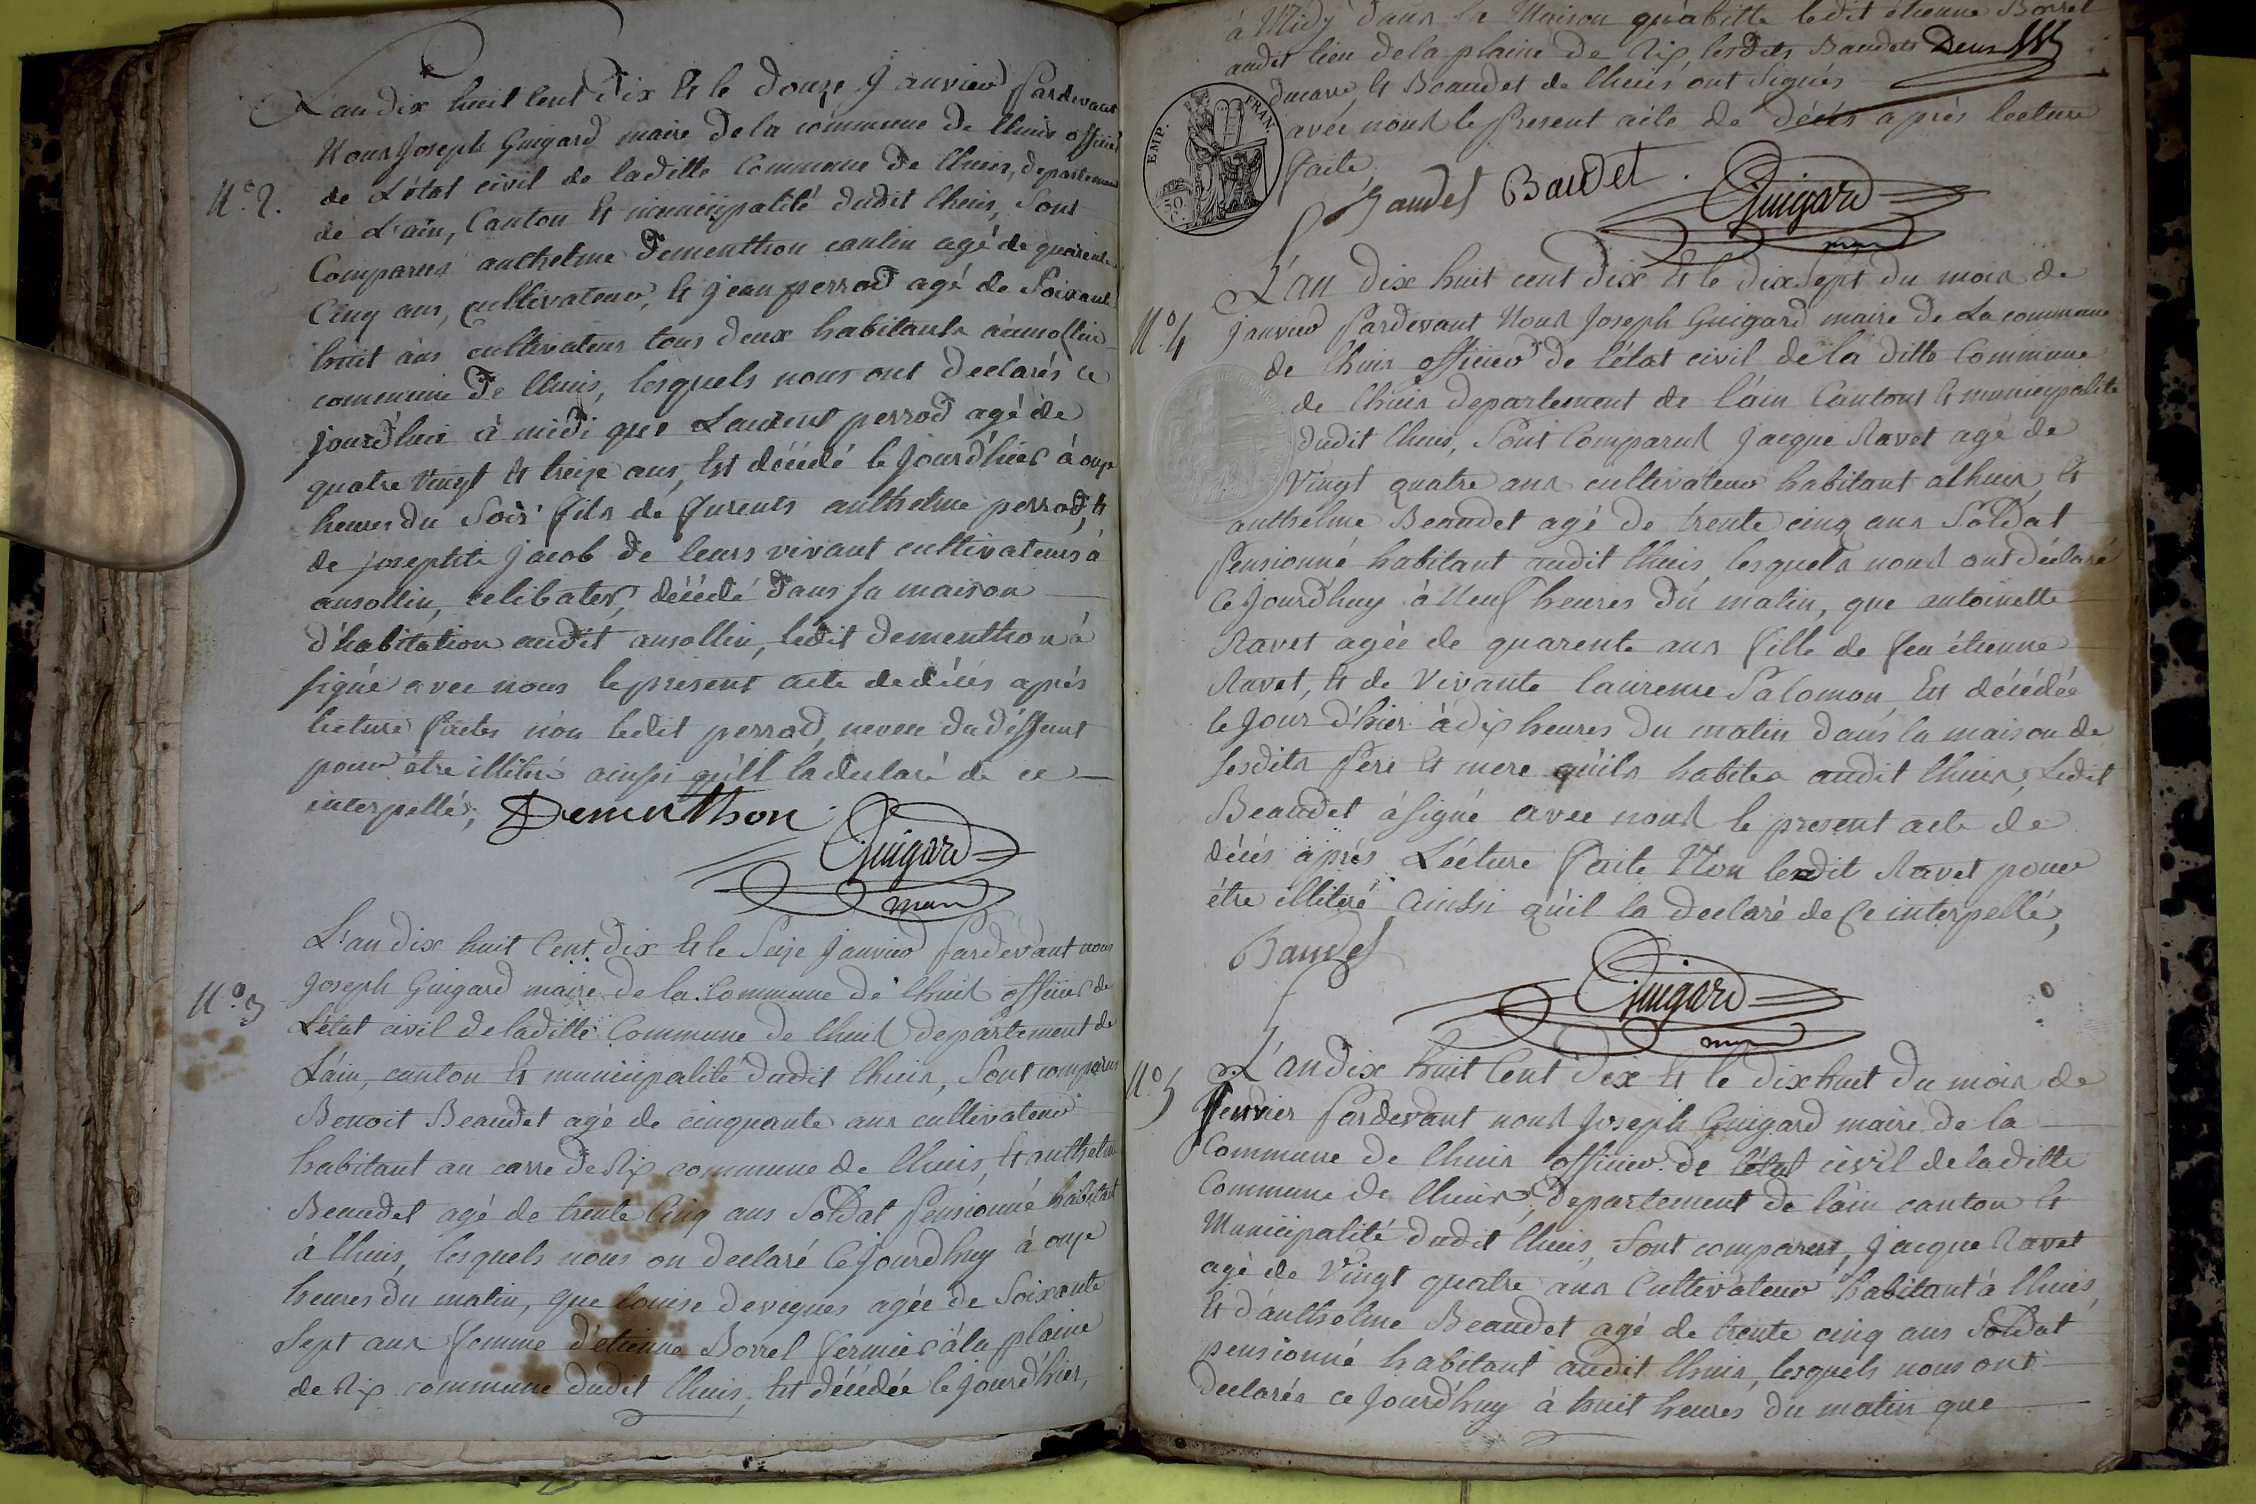 L'an dix huit Cent Dix Et le Douze Janvier Pardevant
Nous Joseph Guigard maire de la commune de Lhuis officier
N.º 2.
de L'état civil de laditte Commune de Lhuis, departement
de L'ain, Canton Et municipalité dudit Lhuis, Sont
Comparus anthelme Dementhon cantin agé de quarente
Cinq ans, cultivateur, Et jean perrod agé de Soixante
huit ans cultivateur tous deux habitants à ansollin
commune De Lhuis, lesquels nous ont Declarés ce
jourd'huis à midi que Laurent perrod agé de
quatre Vingt Et treize ans, Est décédé le jourd'hier à onze
heures du Soir fils de furents anthelme perrod, Et
de josephte jacob de leurs vivant cultivateurs à
ansollin, celibater, décédé dans sa maison
d'habitation audit ansollin, ledit dementhon à
signé avec nous le présent acte de décés aprés
lecture faites non ledit perrod, neveu du déffunt
pour être illiteré ainsi qu'il la declaré de ce
interpellé,
Dementhon
Guigard
maire
L'an dix huit Cent dix Et le Seize Janvier Pardevant nous
N.º 3
Joseph Guigard maire de la Commune de Lhuis officier de
L'état civil de laditte Commune de Lhuis departement de
L'ain, canton Et municipalité dudit Lhuis, Sont comparus
Benoit Beaudet agé de cinquante ans cultivateur
habitant au carre de Rix commune de Lhuis, Et anthelme
Beaudet agé de trente Cinq ans Soldat Pensionné habitant
à Lhuis, lesquels nous on declaré Cejourdhuy à onze
heures du matin, que louise devegnes agée de Soixante
Sept ans femme d'etienne Borrel fermier à la plaine
de Rix commune dudit Lhuis, Est décédée le jourd'hier,
à Midy dans la Maison qu'abitte ledit étienne Borrel
audit lieu de la plaine de Rix, lesdits Baudets Deux
Ducarre, Et Beaudet de Lhuis ont Signés
avec nous le Present acte de décés aprés lecture
faite
EMP. FRAN.
Baudet Baudet.
Guigard
maire
L'an dix huit cent Dix Et le dix Sept du mois de
N.º 4
Janvier Pardevant Nous Joseph Guigard maire de La commune
de Lhuis officier de l'état civil de la ditte Commune
de Lhuis departement de l'ain Canton Et municipalité
dudit Lhuis, Sont Comparus Jacque Ravet agé de
Vingt quatre ans cultivateur habitant a Lhuis, Et
anthelme Beaudet agé de trente cinq ans Soldat
Pensionné habitant audit Lhuis, lesquels nous ont déclaré
Cejourdhuy à Neuf heures du matin, que antoinette
Ravet agée de quarente ans fille de feu étienne
Ravet, Et de Vivante laurence Salomon, Est décédée
le Jour d'hier à dix heures du matin dans la maison de
sesdits Pere Et mere qu'ils habites audit Lhuis, Ledit
Beaudet à signé avec nous le present acte de
décés aprés Lécture faite Non lesdit Ravet pour
être illiteré Ainsi qu'il la declaré de ce interpellé,
Baudet
Guigard
maire
L'an dix huit Cent Dix Et le dix huit du mois de
N.º 5
fevrier Pardevant nous Joseph Guigard maire de la
Commune de Lhuis officier de l'état civil de laditte
Commune de Lhuis, departement de l'ain canton Et
Municipalité dudit Lhuis, Sont comparus, Jacque Ravet
agé de Vingt quatre ans Cultivateur habitant à Lhuis,
Et d'anthelme Beaudet agé de trente cinq ans Soldat
pensionné habitant audit Lhuis, lesquels nous ont
declarés ce Jourd'huy à huit heures du matin que